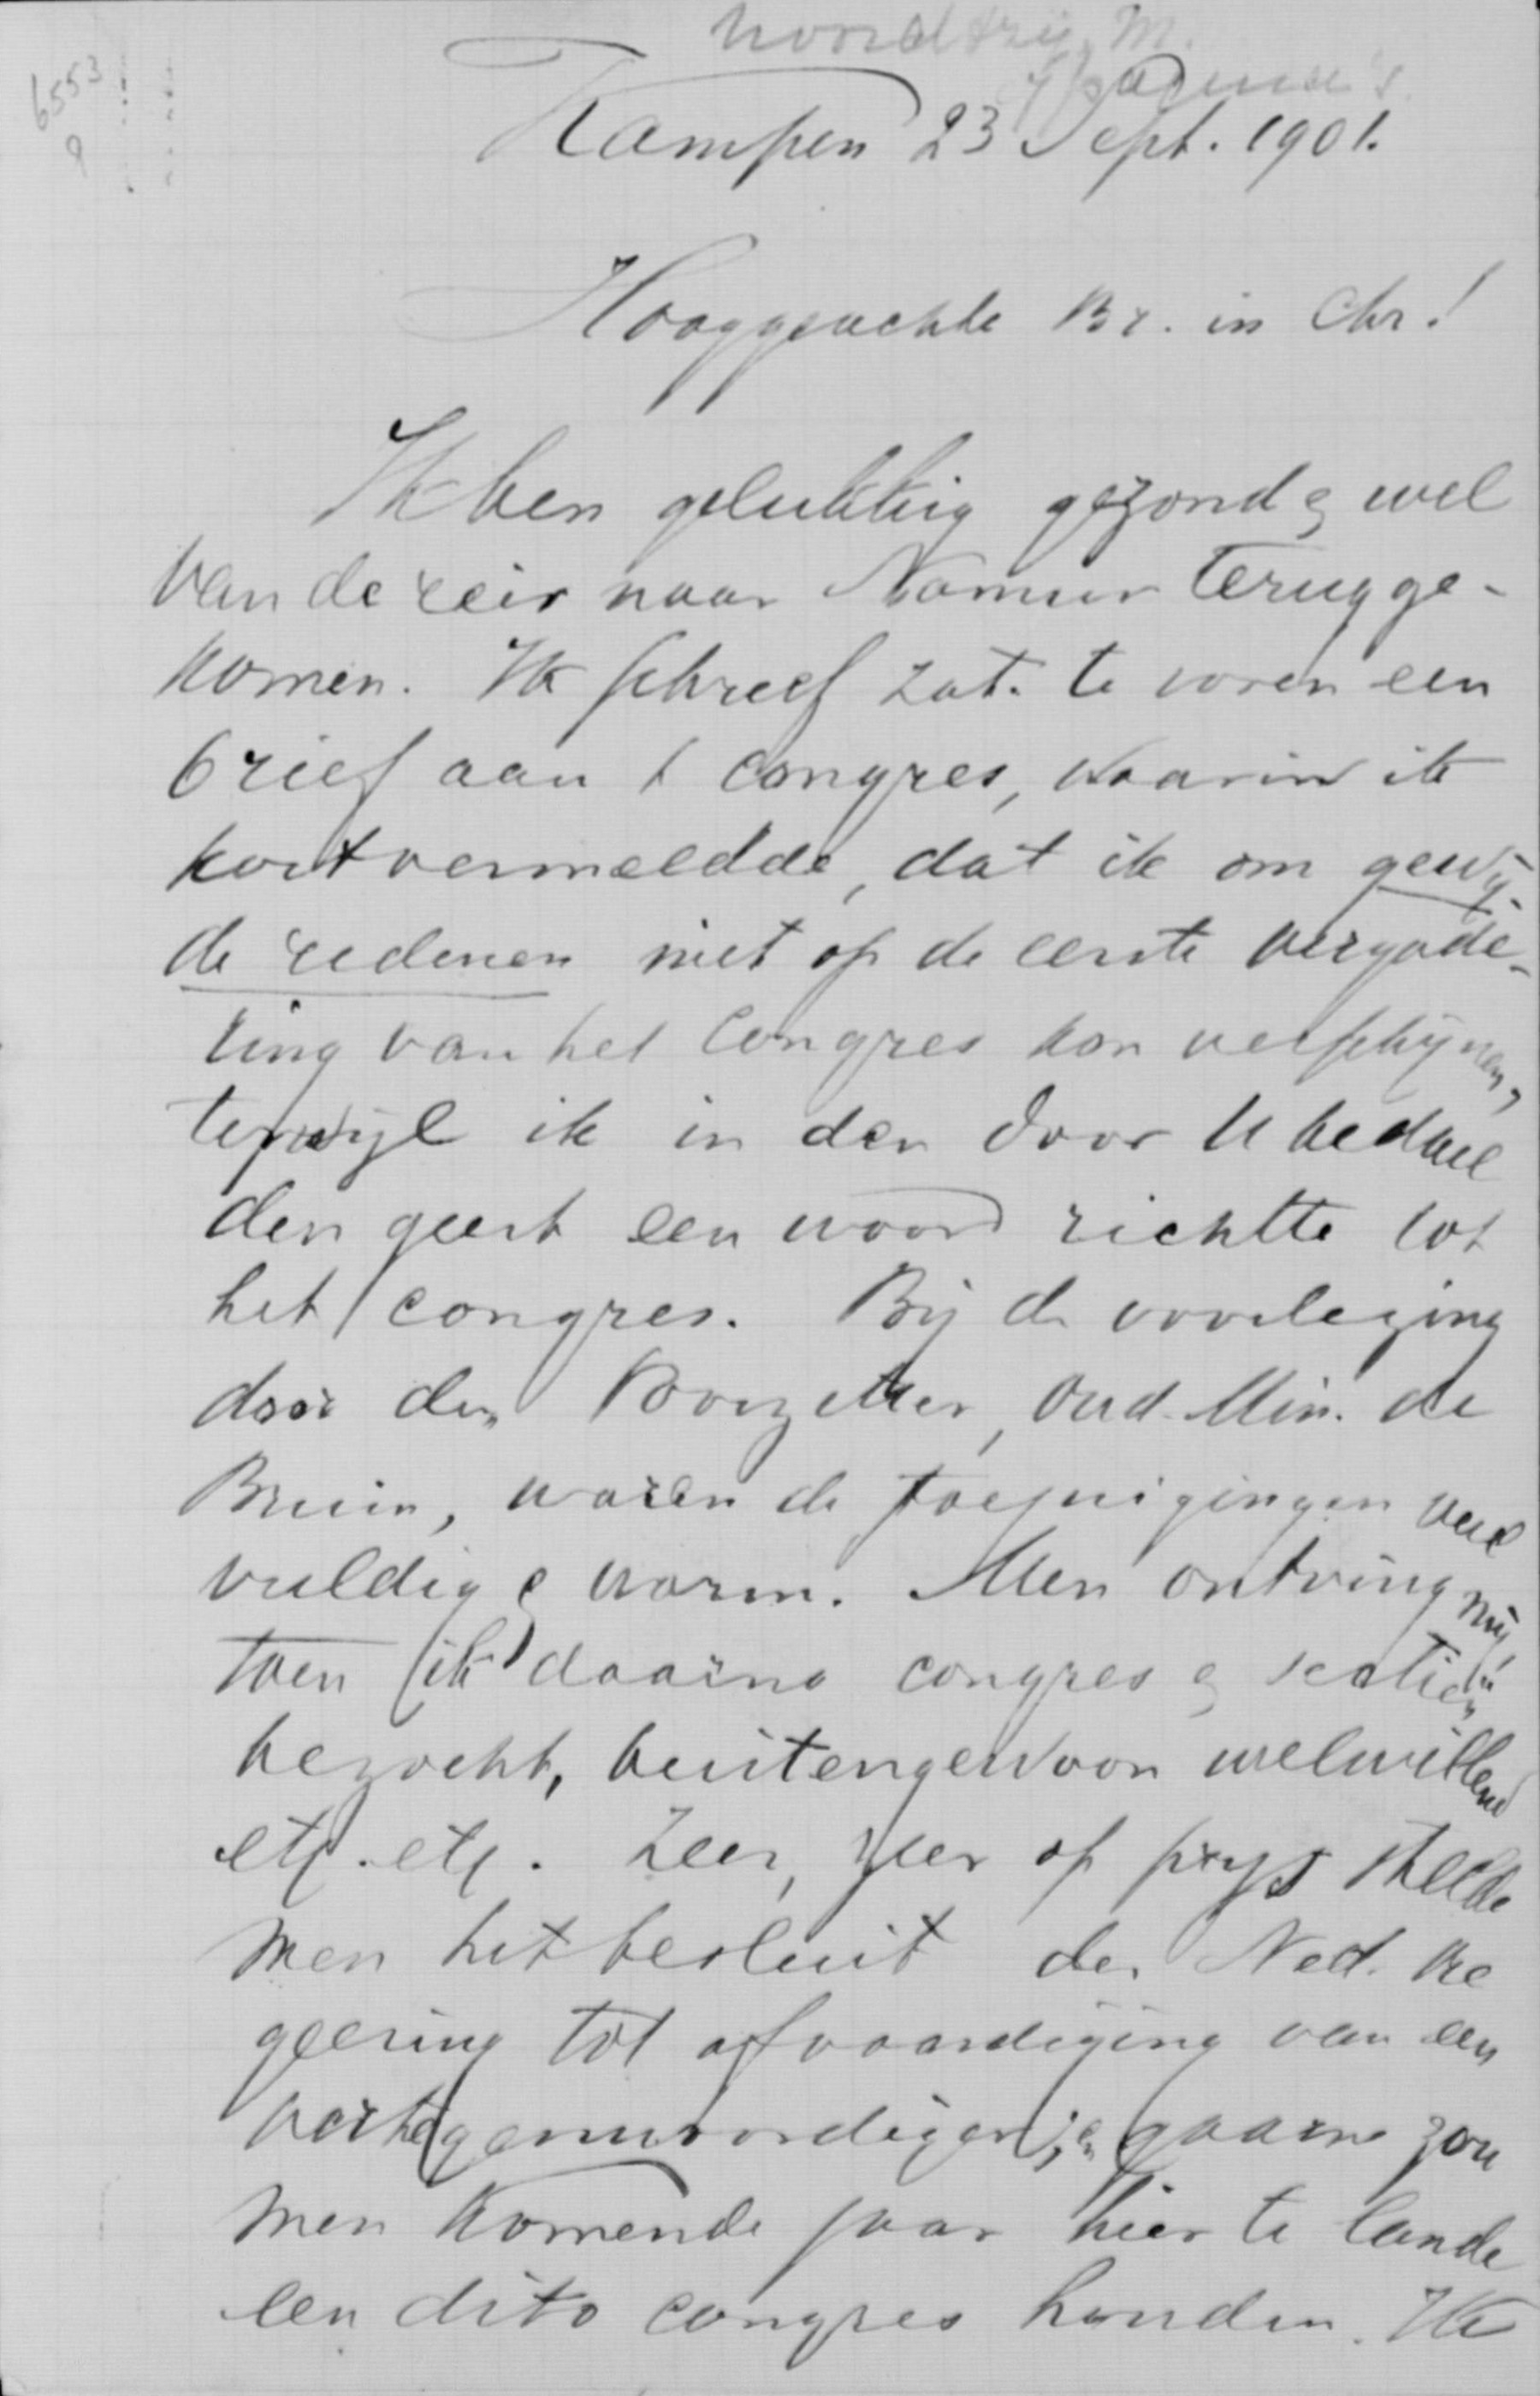 6553
9
Kampen 23 Sept. 1901.
Hooggeachte Br. in Chr!
Ik ben gelukkig gezond & wel
van de reis naar Namur terugge-
komen. Ik schreef Zat. te voren een
brief aan t congres, waarin ik
kort vermeldde, dat ik om gewij-
de redenen niet op de eerste vergade-
ring van het Congres kon verschijnen,
terwijl ik in den door U bedoel
den geest een woord richtte tot
het congres. Bij de voorlezing
door den Voorzitter, Oud-Min. de
Bruin, waren de toejuigingen veel
vuldig & warm. Men ontving mij,
toen ik daarna congres & sectiën
bezocht, buitengewoon welwillend
etc. etc. Zeer, zeer op prijs stelde
men het besluit der Ned. Re
geering tot afvaardiging van een
vertegenwoordiger; en gaarne zou
men komende jaar hier te lande
een dito congres houden. Ik